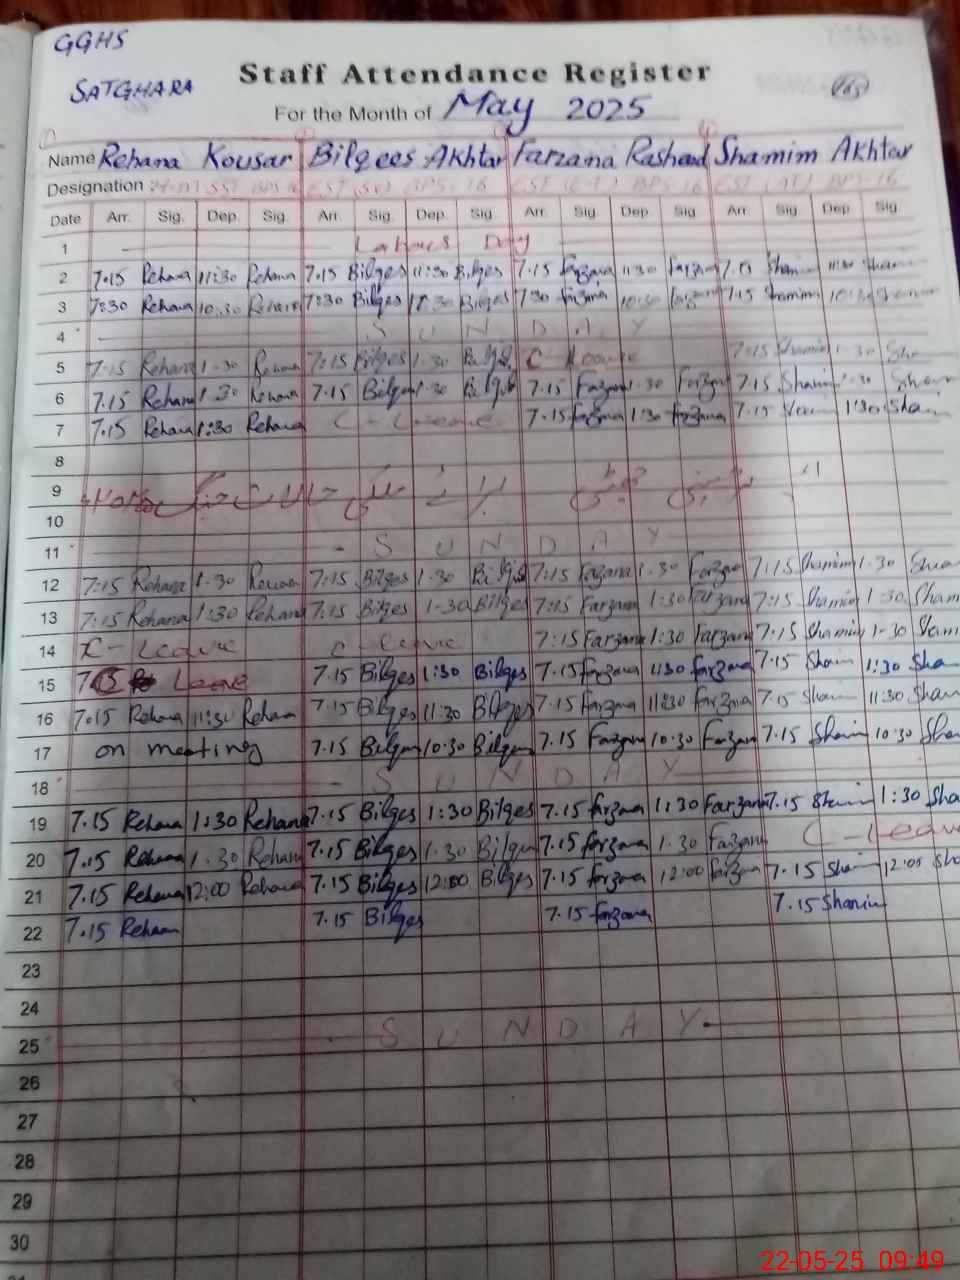 GGHS
SATGHARA
Staff Attendance Register
165
For the Month of May 2025
Name Rehana Kousar Bilqees Akhtar Farzana Rasheed Shamim Akhtar
Designation SST BPS-16 EST BPS-16 EST BPS-16 EST BPS-16
Date Arr. Sig. Dep. Sig Arr. Sig. Dep. Sig Arr. Sig Dep. Sig Arr Sig Dep Sig.
1 Labour's Day
2 7.15 Rehana 11:30 Rehana 7.15 Bilges 11:30 Bilges 7.15 farzana 11:30 farzana 7.15 Shamim 11:30 Shamim
3 7:30 Rehana 10:30 Rehana 7:30 Bilges 10:30 Bilges 7:30 farzana 10:30 farzana 7.15 Shamim 10:30 Shamim
4 SUNDAY
5 7:15 Rehana 1-30 Rehana 7:15 Bilges 1-30 Bilges C-Leave 7:15 Shamim 1-30 Sha
6 7.15 Rehana 1.30 Rehana 7.15 Bilges 1.30 Bilges 7.15 Farzana 1.30 Farzana 7.15 Shamim 1.30 Sham
7 7.15 Rehana 1:30 Rehana C-Leave 7.15 farzana 1:30 farzana 7.15 Shamim 1:30 Sham
8
9
10
11 SUNDAY
12 7:15 Rehana 1-30 Rehana 7:15 Bilges 1-30 Bilges 7:15 Farzana 1-30 Farzana 7:15 Shamim 1-30 Sham
13 7:15 Rehana 1:30 Rehana 7:15 Bilges 1-30 Bilges 7:15 Farzana 1:30 Farzana 7:15 Shamim 1:30 Sham
14 C-Leave C-Leave 7:15 Farzana 1:30 Farzana 7.15 Shamim 1-30 Sham
15 Leave 7.15 Bilges 1:30 Bilges 7.15 farzana 1:30 farzana 7.15 Sham 1:30 Sha
16 7:15 Rehana 11:30 Rehana 7.15 Bilges 11:30 Bilges 7.15 Farzana 11:30 Farzana 7.15 Sham 11:30 Sham
17 on meeting 7.15 Bilges 10:30 Bilges 7.15 Farzana 10:30 Farzana 7.15 Sham 10:30 Sha
18 SUNDAY
19 7.15 Rehana 1:30 Rehana 7.15 Bilges 1:30 Bilges 7.15 farzana 1:30 Farzana 7.15 Sham 1:30 Sha
20 7.15 Rehana 1.30 Rehana 7.15 Bilges 1.30 Bilges 7.15 farzana 1.30 Farzana C-Leave
21 7.15 Rehana 12:00 Rehana 7.15 Bilges 12:00 Bilges 7.15 farzana 12:00 farzana 7.15 Sham 12:00 Sha
22 7.15 Rehana 7.15 Bilges 7.15 farzana 7.15 Shamim
23
24
25 SUNDAY
26
27
28
29
30
22-05-25 09:49